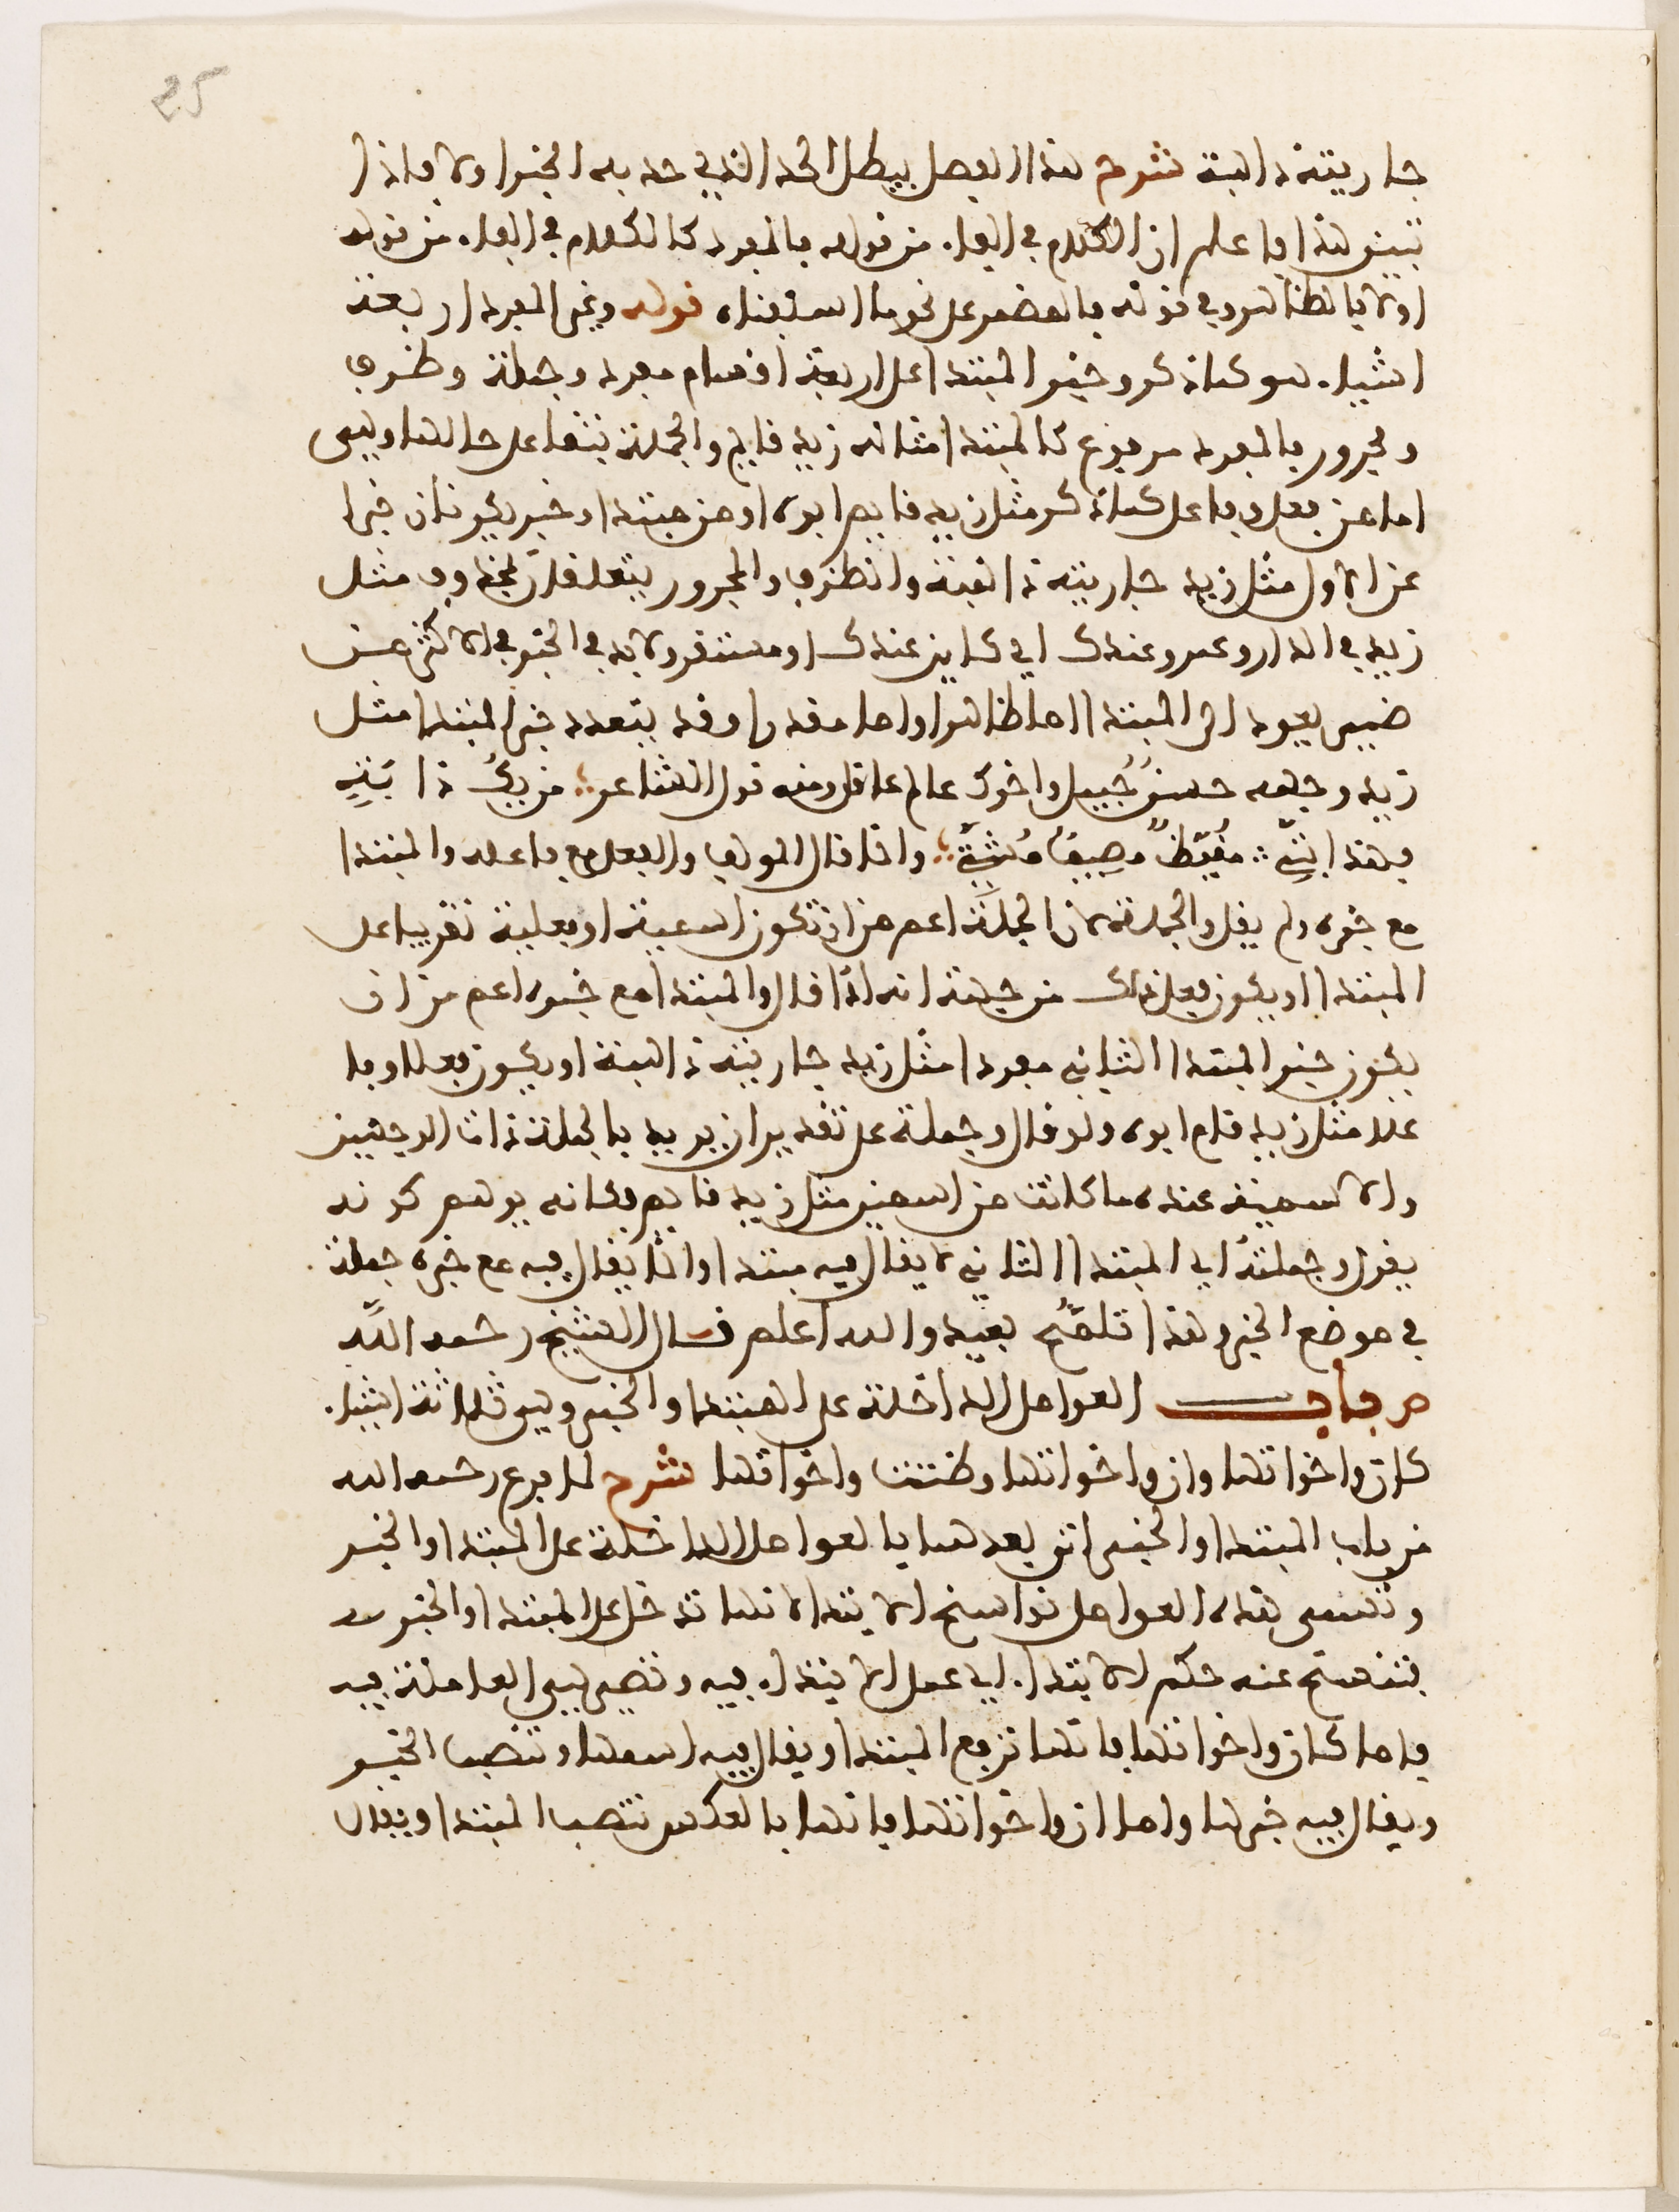 25
جاريته ذاهبة شرح هذا الفصل يبطل الحد الذي حد به الخبر اولا فاذا
تبين هذا فاعلم ان الكلام في الفاء من قوله فالمفرد كالكلام في الفاء من قوله
اولا فالظاهر وفي قوله فالمضمر على نحو ما اسلفناه قوله وغير المفرد اربعة
اشياء هو كما ذكر وخبر المبتدا على اربعة اقسام مفرد وجملة وظرف
ومجرور فالمفرد مرفوع كالمبتدا مثاله زيد قايم والجملة تبقا على حالها وهي
اما من فعل وفاعل كما ذكر مثل زيد قايم ابوه او من مبتدا وخبر يكونان خبرا
عن الاول مثل زيد جاريته ذاهبة والظرف والمجرور يتعلقان بمحذوف مثل
زيد في الدار وعمرو عندك اي كاين عندك او مستقر ولا بد في الخبر في الاكثر من
ضمير يعود الى المبتدا اما ظاهرا واما مقدرا وقد يتعدد خبر المبتدا مثل
زيد وجهه حسن جميل واخوك عالم عاقل ومنه قول الشاعر من يك ذا بت
فهذا بتي مقيظ مصيف مشتي وانما قال المولف والفعل مع فاعله والمبتدا
مع خبره ولم يقل والجملة لان الجملة اعم من ان تكون اسمية او فعلية تقريبا على
المبتدا او يكون فعل ذلك من جهة انه اذا قال والمبتدا مع خبره اعم من ان
يكون خبر المبتدا الثاني مفردا مثل زيد جاريته ذاهبة او يكون فعلا وفا
علا مثل زيد قام ابوه ولو قال وجملة على تقدير ان يريد بالجملة ذات الوجهين
والاسمية عنده ما كانت من اسمين مثل زيد قايم فكانه يوهم كونه
يقول وجملة اي المبتدا الثاني لا يقال فيه مبتدا وانما يقال فيه مع خبره جملة
في موضع الخبر وهذا تلمح بعيد والله اعلم قال الشيخ رحمه الله
ص باب العوامل الداخلة على المبتدا والخبر وهي ثلاثة اشياء
كان واخواتها وان واخواتها وظننت واخواتها شرح لما فرغ رحمه الله
من باب المبتدا والخبر اتى بعدهما بالعوامل الداخلة على المبتدا والخبر
وتسمى هذه العوامل نواسخ الابتدا لانها تدخل على المبتدا والخبر
فتنسخ عنه حكم الابتداء اي عمل الابتداء فيه وتصير هي العاملة فيه
فاما كان واخواتها فانها ترفع المبتدا ويقال فيه اسمها وتنصب الخبر
ويقال فيه خبرها واما ان واخواتها فانها بالعكس تنصب المبتدا ويقال